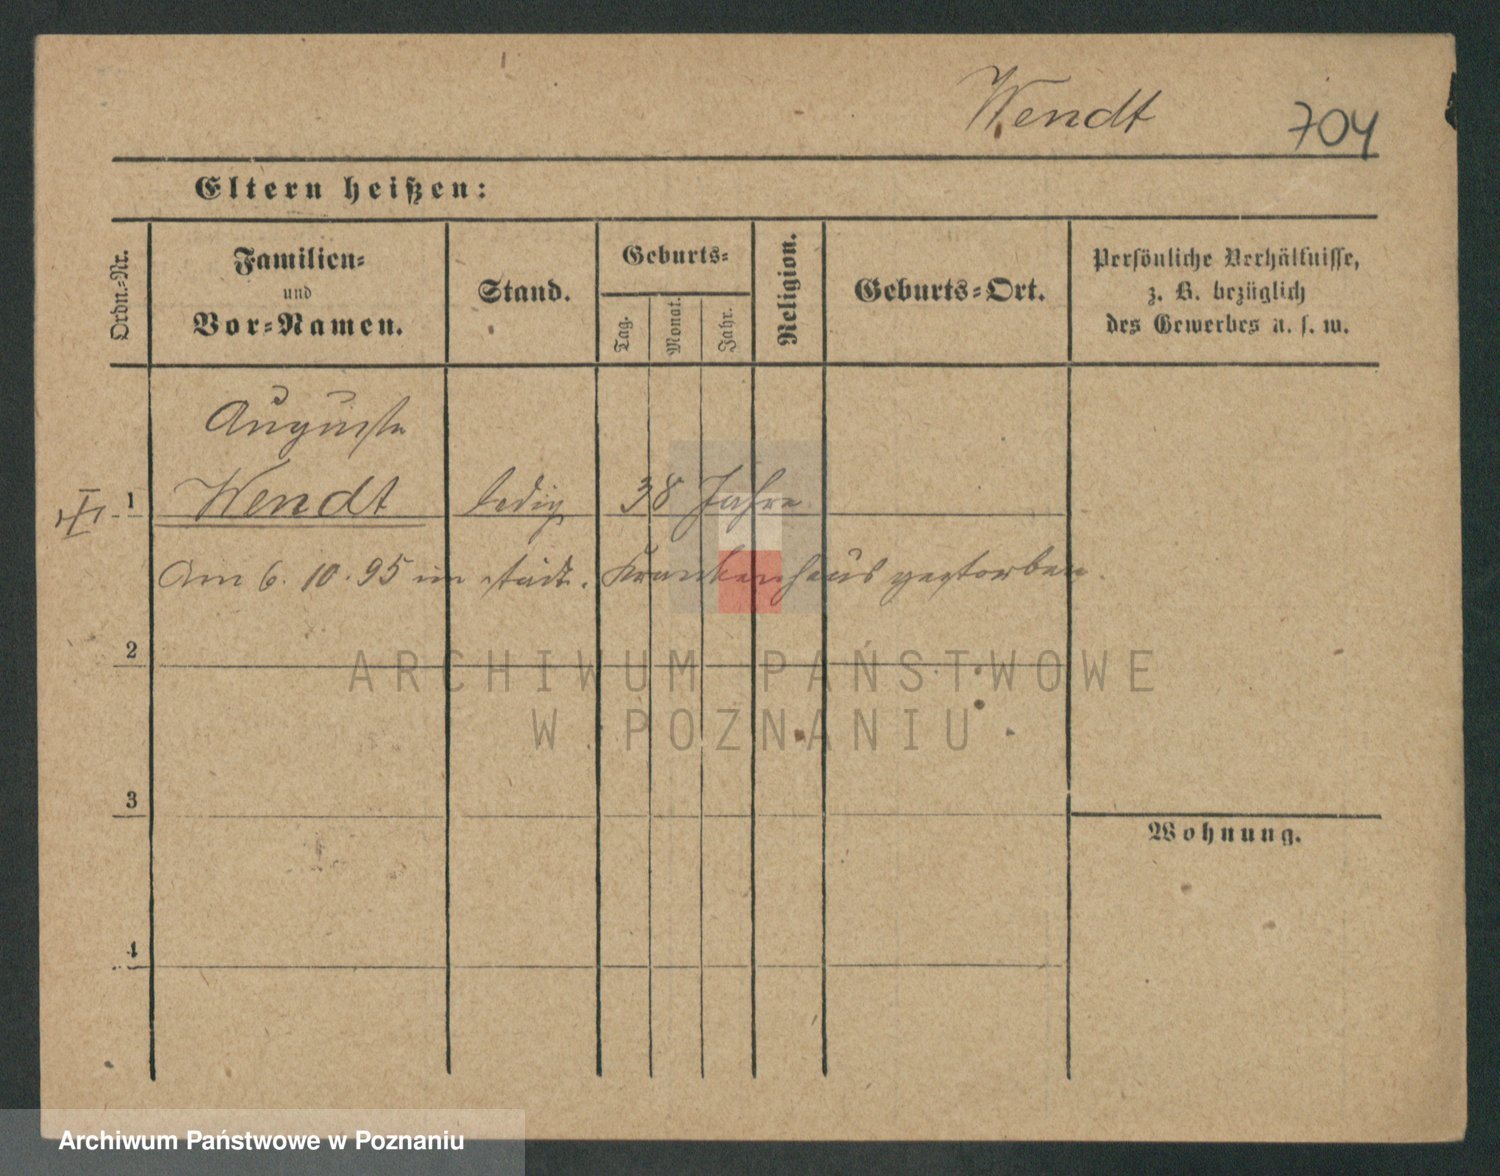 Wendt 704
Eltern heißen:
Ordn.-Nr.
Familien-
und
Vor-Namen.
Stand.
Geburts-
Tag.
Monat.
Jahr.
Religion.
Geburts-Ort.
Persönliche Verhältnisse,
z. B. bezüglich
des Gewerbes u. s. w.
Auguste
1 Wendt ledig 38 Jahre
Am 6. 10. 95 im städt. Krankenhaus gestorben.
2
ARCHIWUM PAŃSTWOWE
W POZNANIU
3
Wohnung.
4
Archiwum Państwowe w Poznaniu